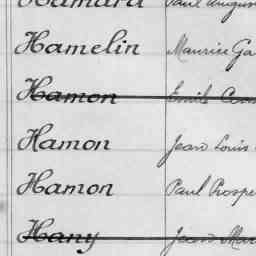 Hamard Paul August
Hamelin Maurice Ga
Hamon Emile
Hamon Jean Louis
Hamon Paul Prospe
Hany Jean Mar